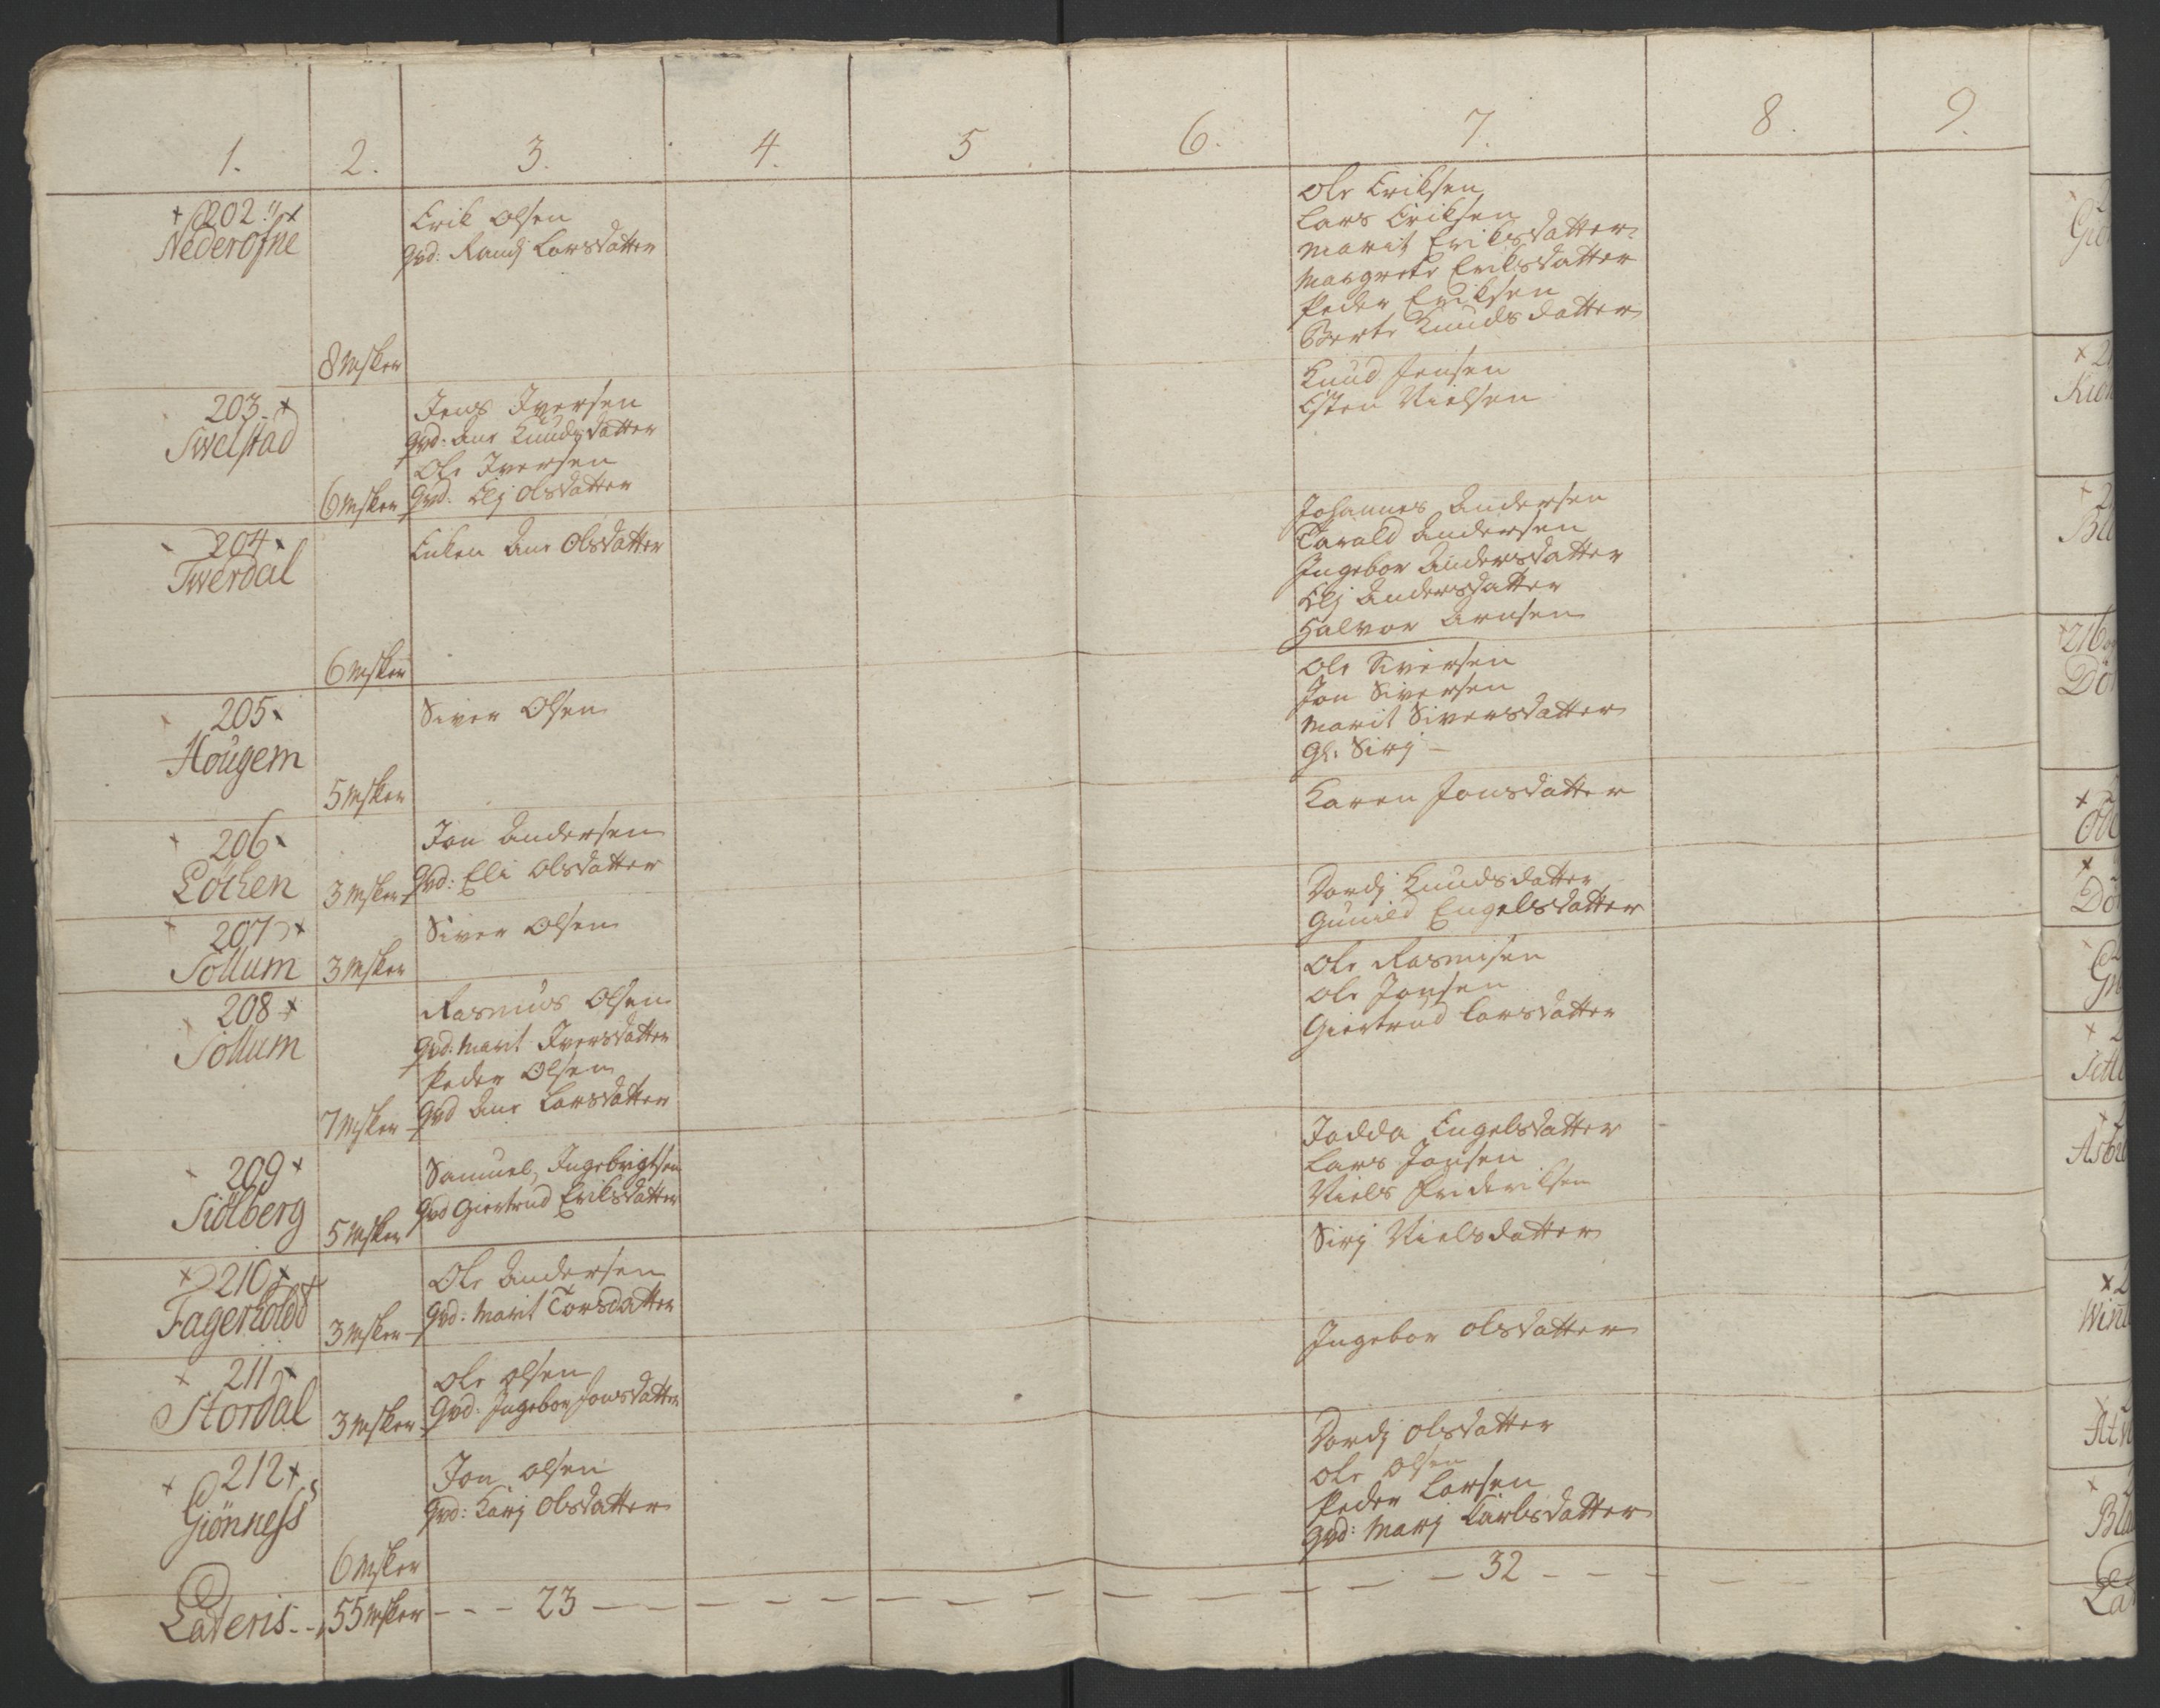 1. 2. 3. 4. 5 6. 7. 8. 9.
202
Nederofne
8 Msker
Erik Olsen
qvd: Randj Larsdatter
Ole Eriksen
Lars Eriksen
Marit Eriksdatter
Margrete Eriksdatter
Peder Eriksen
Berte Knudsdatter
203
Swelstad
6 Msker
Jens Iversen
qvd: Ane Knudsdatter
Ole Iversen
qvd. Elj Olsdatter
Knud Jensen
Esten Nielsen
204
Twerdal
6 Msker
Enken Ane Olsdatter
Johannes Andersen
Tarald Andersen
Ingebor Andersdatter
Elj Andersdatter
Halvor Arnsen
205
Hougem
5 Msker
Siver Olsen
Ole Siversen
Jon Siversen
Marit Siversdatter
Gl. Sirj
206
Löchen
3 Msker
Jon Andersen
qvd: Eli Olsdatter
Karen Jonsdatter
207
Sollum
3 Msker
Siver Olsen
Dordj Knudsdatter
Gunild Engelsdatter
208
Sollum
7 Msker
Rasmus Olsen
qvd: Marit Iversdatter
Peder Olsen
qvd Ane Larsdatter
Ole Rasmisen
Ole Jonsen
Giertrud Larsdatter
209
Siölberg
5 Msker
Samuel Ingebrigtsen
qvd Giertrud Eriksdatter
Jodda Engelsdatter
Lars Jonsen
Niels Frideriksen
210
Fagerholdt
3 Msker
Ole Andersen
qvd: Marit Torsdatter
Sirj Nielsdatter
211
Stordal
3 Msker
Ole Olsen
qvd: Ingebor Jonsdatter
Ingebor Olsdatter
212
Giönness
6 Msker
Jon Olsen
qvd: Karj Olsdatter
Dordj Olsdatter
Ole Olsen
Peder Larsen
qvd: Marj Karlsdatter
Lateris - - 55 Msker - - - 23 - - - 32 - - -